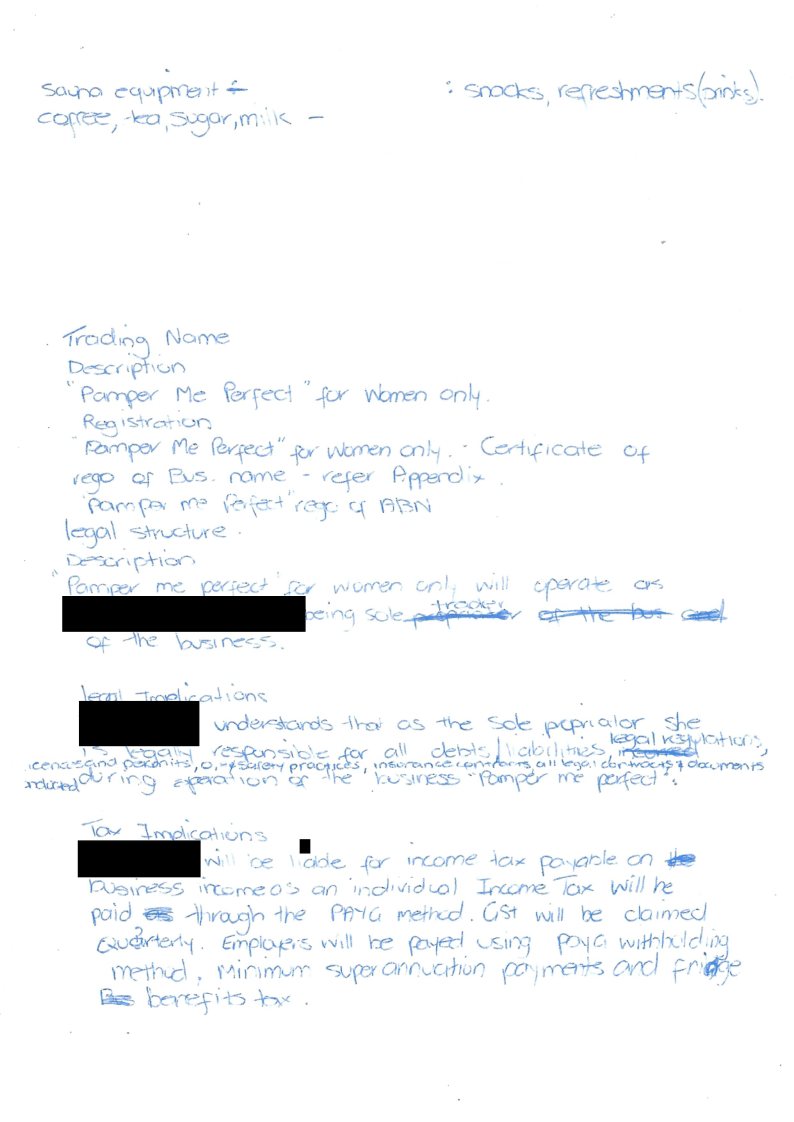 Sauna equipment -
: snacks, refreshments (drinks).
coffee, tea, sugar, milk -
Trading Name
Description
"Pamper Me Perfect" for women only.
Registration
"Pamper Me Perfect" for women only. - Certificate of
rego of Bus. name - refer Appendix.
"Pamper me Perfect" rego of ABN
legal structure.
Description
"Pamper me perfect" for women only will operate as
being sole trader
of the business.
legal Implications
understands that as the sole propriator she
is legally responsible for all debts/liabilities, legal regulations,
and permits, safety practices, insurance contracts, all legal contracts & documents
during operation of the business "Pamper me perfect".
Tax Implications
will be liable for income tax payable on
business income as an individual Income Tax will be
paid through the PAYG method. GST will be claimed
Quarterly. Employers will be payed using PAYG withholding
method, Minimum superannuation payments and fringe
benefits tax.